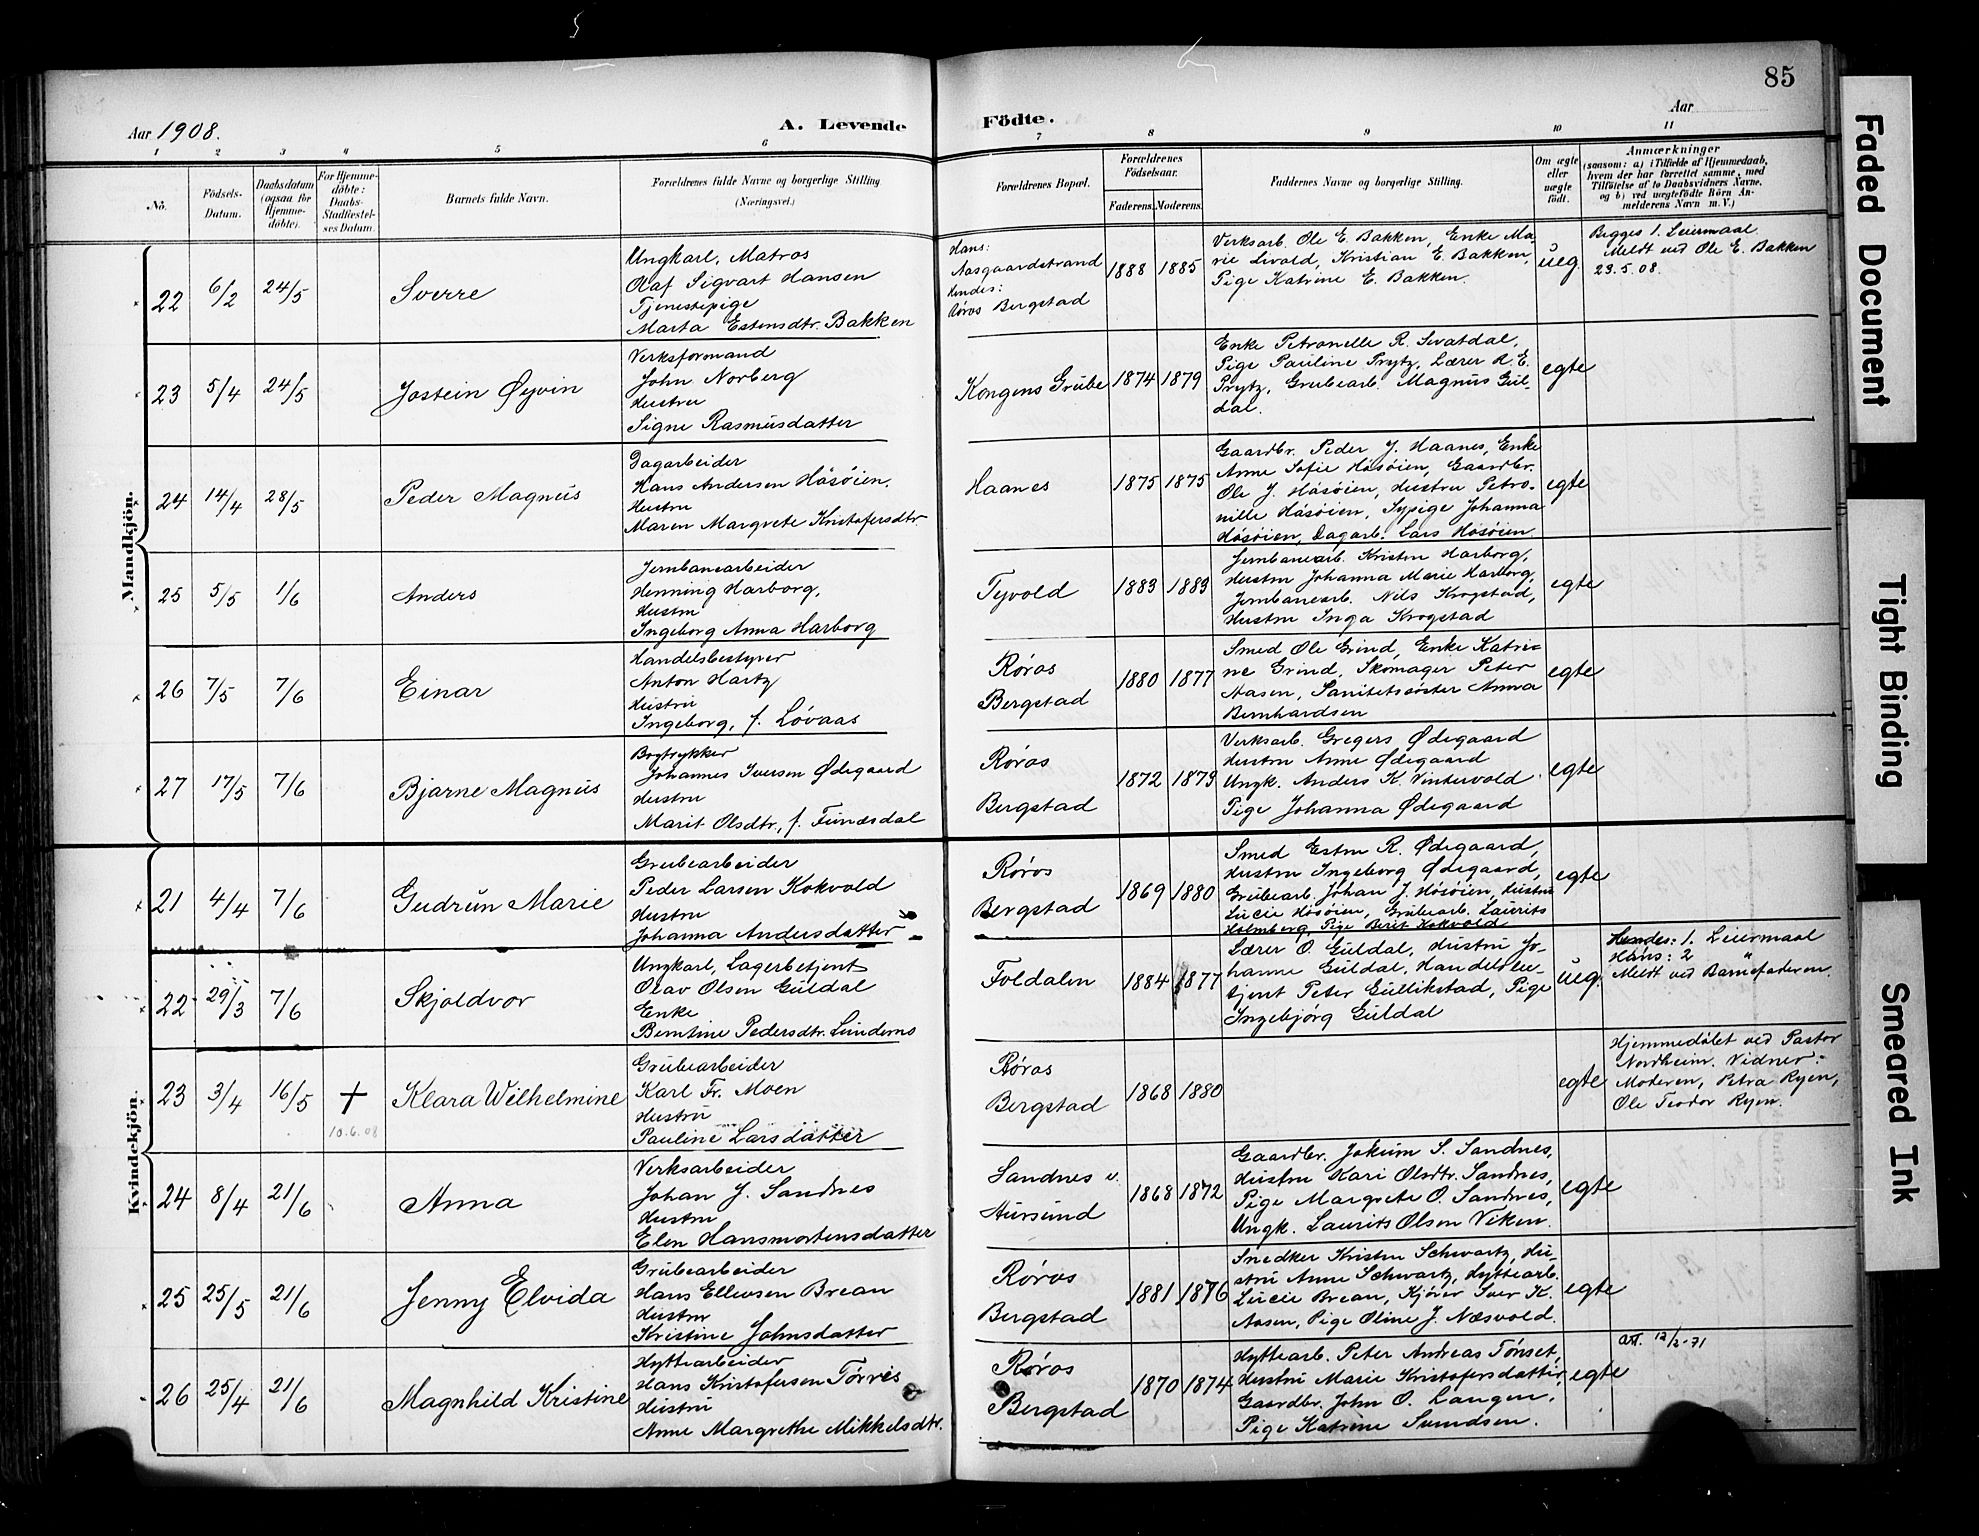 85
Aar 1908.
A. Levende Födte.
Aar
1 2 3 4 5 6 7 8 9 10 11
No.
Födsels-Datum.
Daabsdatum (ogsaa for Hjemme-döbte).
For Hjemme-döbte: Daabs-Stadfæstel-ses Datum.
Barnets fulde Navn.
Forældrenes fulde Navne og borgerlige Stilling
(Næringsvei.)
Forældrenes Bopæl.
Forældrenes Födselsaar.
Faderens. Moderens.
Faddernes Navne og borgerlige Stilling.
Om ægte eller uægte födt.
Anmærkninger
(saasom: a) i Tilfælde af Hjemmedaab,
hvem der har forrettet samme, med
Tilföielse af to Daabsvidners Navne,
og b) ved uægtefödte Börn An-
melderens Navn m. V.)
Mandkjön.
22 6/2 24/5 Sverre
Ungkarl, Matros
Olaf Sigvart Hansen
Tjenestepige
Marta Estensdtr. Bakken
Hans:
Aasgaardstrand
Hendes:
Røros Bergstad
1888 1885
Verksarb. Ole E. Bakken, Enke Ma-
rie Livold, Kristian E. Bakken,
Pige Katrine E. Bakken.
ueg
Begges 1. Leiermaal.
Meldt ved Ole E. Bakken
23.5.08.
23 5/4 24/5 Jostein Øyvin
Verksformand
John Norberg
Hustru
Signe Rasmusdatter
Kongens Grube
1874 1879
Enke Petronelle R. Svatdal,
Pige Pauline Prytz, Lærer R. E.
Prytz, Grubearb. Magnus Gul-
dal.
egte
24 14/4 28/5 Peder Magnus
Dagarbeider
Hans Andersen Høsøien.
Hustru
Maren Margrete Kristofersdtr
Haanes
1875 1875
Gaardbr. Peder J. Haanes, Enke
Anne Sofie Høsøien, Gaardbr.
Ole J. Høsøien, Hustru Petro-
nille Høsøien, Sypige Johanna
Høsøien, Dagarb. Lars Høsøien
egte
25 5/5 1/6 Anders
Jernbanearbeider
Henning Harborg,
Hustru
Ingeborg Anna Harborg
Tyvold
1883 1883
Jernbanearb. Kristen Harborg,
Hustru Johanna Marie Harborg,
Jernbanearb. Nils Krogstad,
Hustru Inga Krogstad
egte
26 7/5 7/6 Einar
Handelsbestyrer
Anton Hartz
Hustru
Ingeborg, f. Løvaas
Røros
Bergstad
1880 1877
Smed Ole Grind, Enke Katri-
ne Grind, Skomager Peter
Aasen, Sanitetssøster Anna
Bernhardsen
egte
27 17/5 7/6 Bjarne Magnus
Bogtrykker
Johannes Iversen Ødegaard
Hustru
Marit Olsdtr., f. Funæsdal
Røros
Bergstad
1872 1879
Verksarb. Gregers Ødegaard
Hustru Anne Ødegaard
Ungk. Anders K. Vintervold
Pige Johanna Ødegaard
egte
Kvindekjön.
21 4/4 7/6 Gudrun Marie
Grubearbeider
Peder Larsen Kokvold
Hustru
Johanna Andersdatter
Røros
Bergstad
1869 1880
Smed Esten R. Ødegaard,
Hustru Ingeborg Ødegaard,
Grubearb. Johan J. Høsøien, Hustru
Lucie Høsøien, Grubearb. Laurits
Holmberg, Pige Berit Kokvold
egte
22 29/3 7/6 Skjoldvor
Ungkarl, Lagerbetjent
Olav Olsen Guldal
Enke
Berntine Pedersdtr. Lundemo
Foldalen
1884 1877
Lærer O. Guldal, Hustru Jo-
hanne Guldal, Handelsbe-
tjent Peter Gullikstad, Pige
Ingebjörg Guldal
ueg.
Hendes: 1. Leiermaal
Hans: 2 "
Meldt ved Barnefaderen.
23 3/4 16/5 +
10.6.08
Klara Wilhelmine
Grubearbeider
Karl Fr. Moen
Hustru
Pauline Larsdatter
Røros
Bergstad
1868 1880
egte
Hjemmedøbt ved Pastor
Nordheim. Vidner:
Moderen, Petra Ryen,
Ole Teodor Ryen.
24 8/4 21/6 Anna
Verksarbeider
Johan J. Sandnes
Hustru
Elen Hansmortensdatter
Sandnes v.
Aursund
1868 1872
Gaardbr. Jokum S. Sandnes,
Hustru Kari Olsdtr. Sandnes,
Pige Margrete O. Sandnes,
Ungk. Laurits Olsen Viken.
egte
25 25/5 21/6 Jenny Elvida
Grubearbeider
Hans Ellevsen Brean
Hustru
Kristine Johnsdatter
Røros
Bergstad
1881 1876
Snedker Kristen Schwartz, Hu-
stru Anne Schwartz, Hyttearb.
Lucie Brean, Kjøier Iver K.
Aasen, Pige Oline J. Næsvold.
egte
26 25/4 21/6 Magnhild Kristine
Hyttearbeider
Hans Kristofersen Tørres
Hustru
Anne Margrethe Mikkelsdtr.
Røros
Bergstad
1870 1874
Hyttearb. Peter Andreas Tønset,
Hustru Marie Kristofersdatter,
Gaardbr. John O. Langen,
Pige Katrine Svendsen.
egte
att. 12/2-71
Faded Document
Tight Binding
Smeared Ink